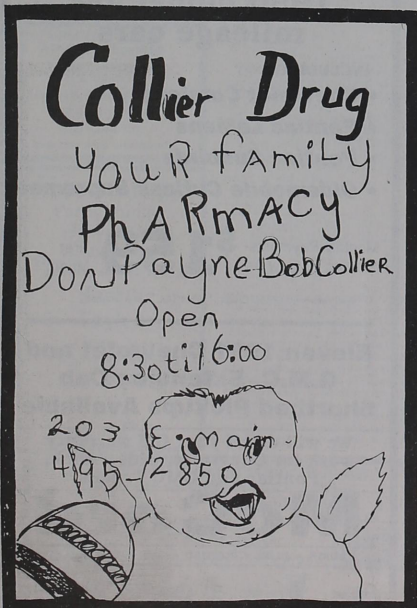 Collier Drug
YouR fAmiLy
PhARmACy
Don Payne-Bob Collier
Open
8:30 til 6:00
203 E. Main
495-2850